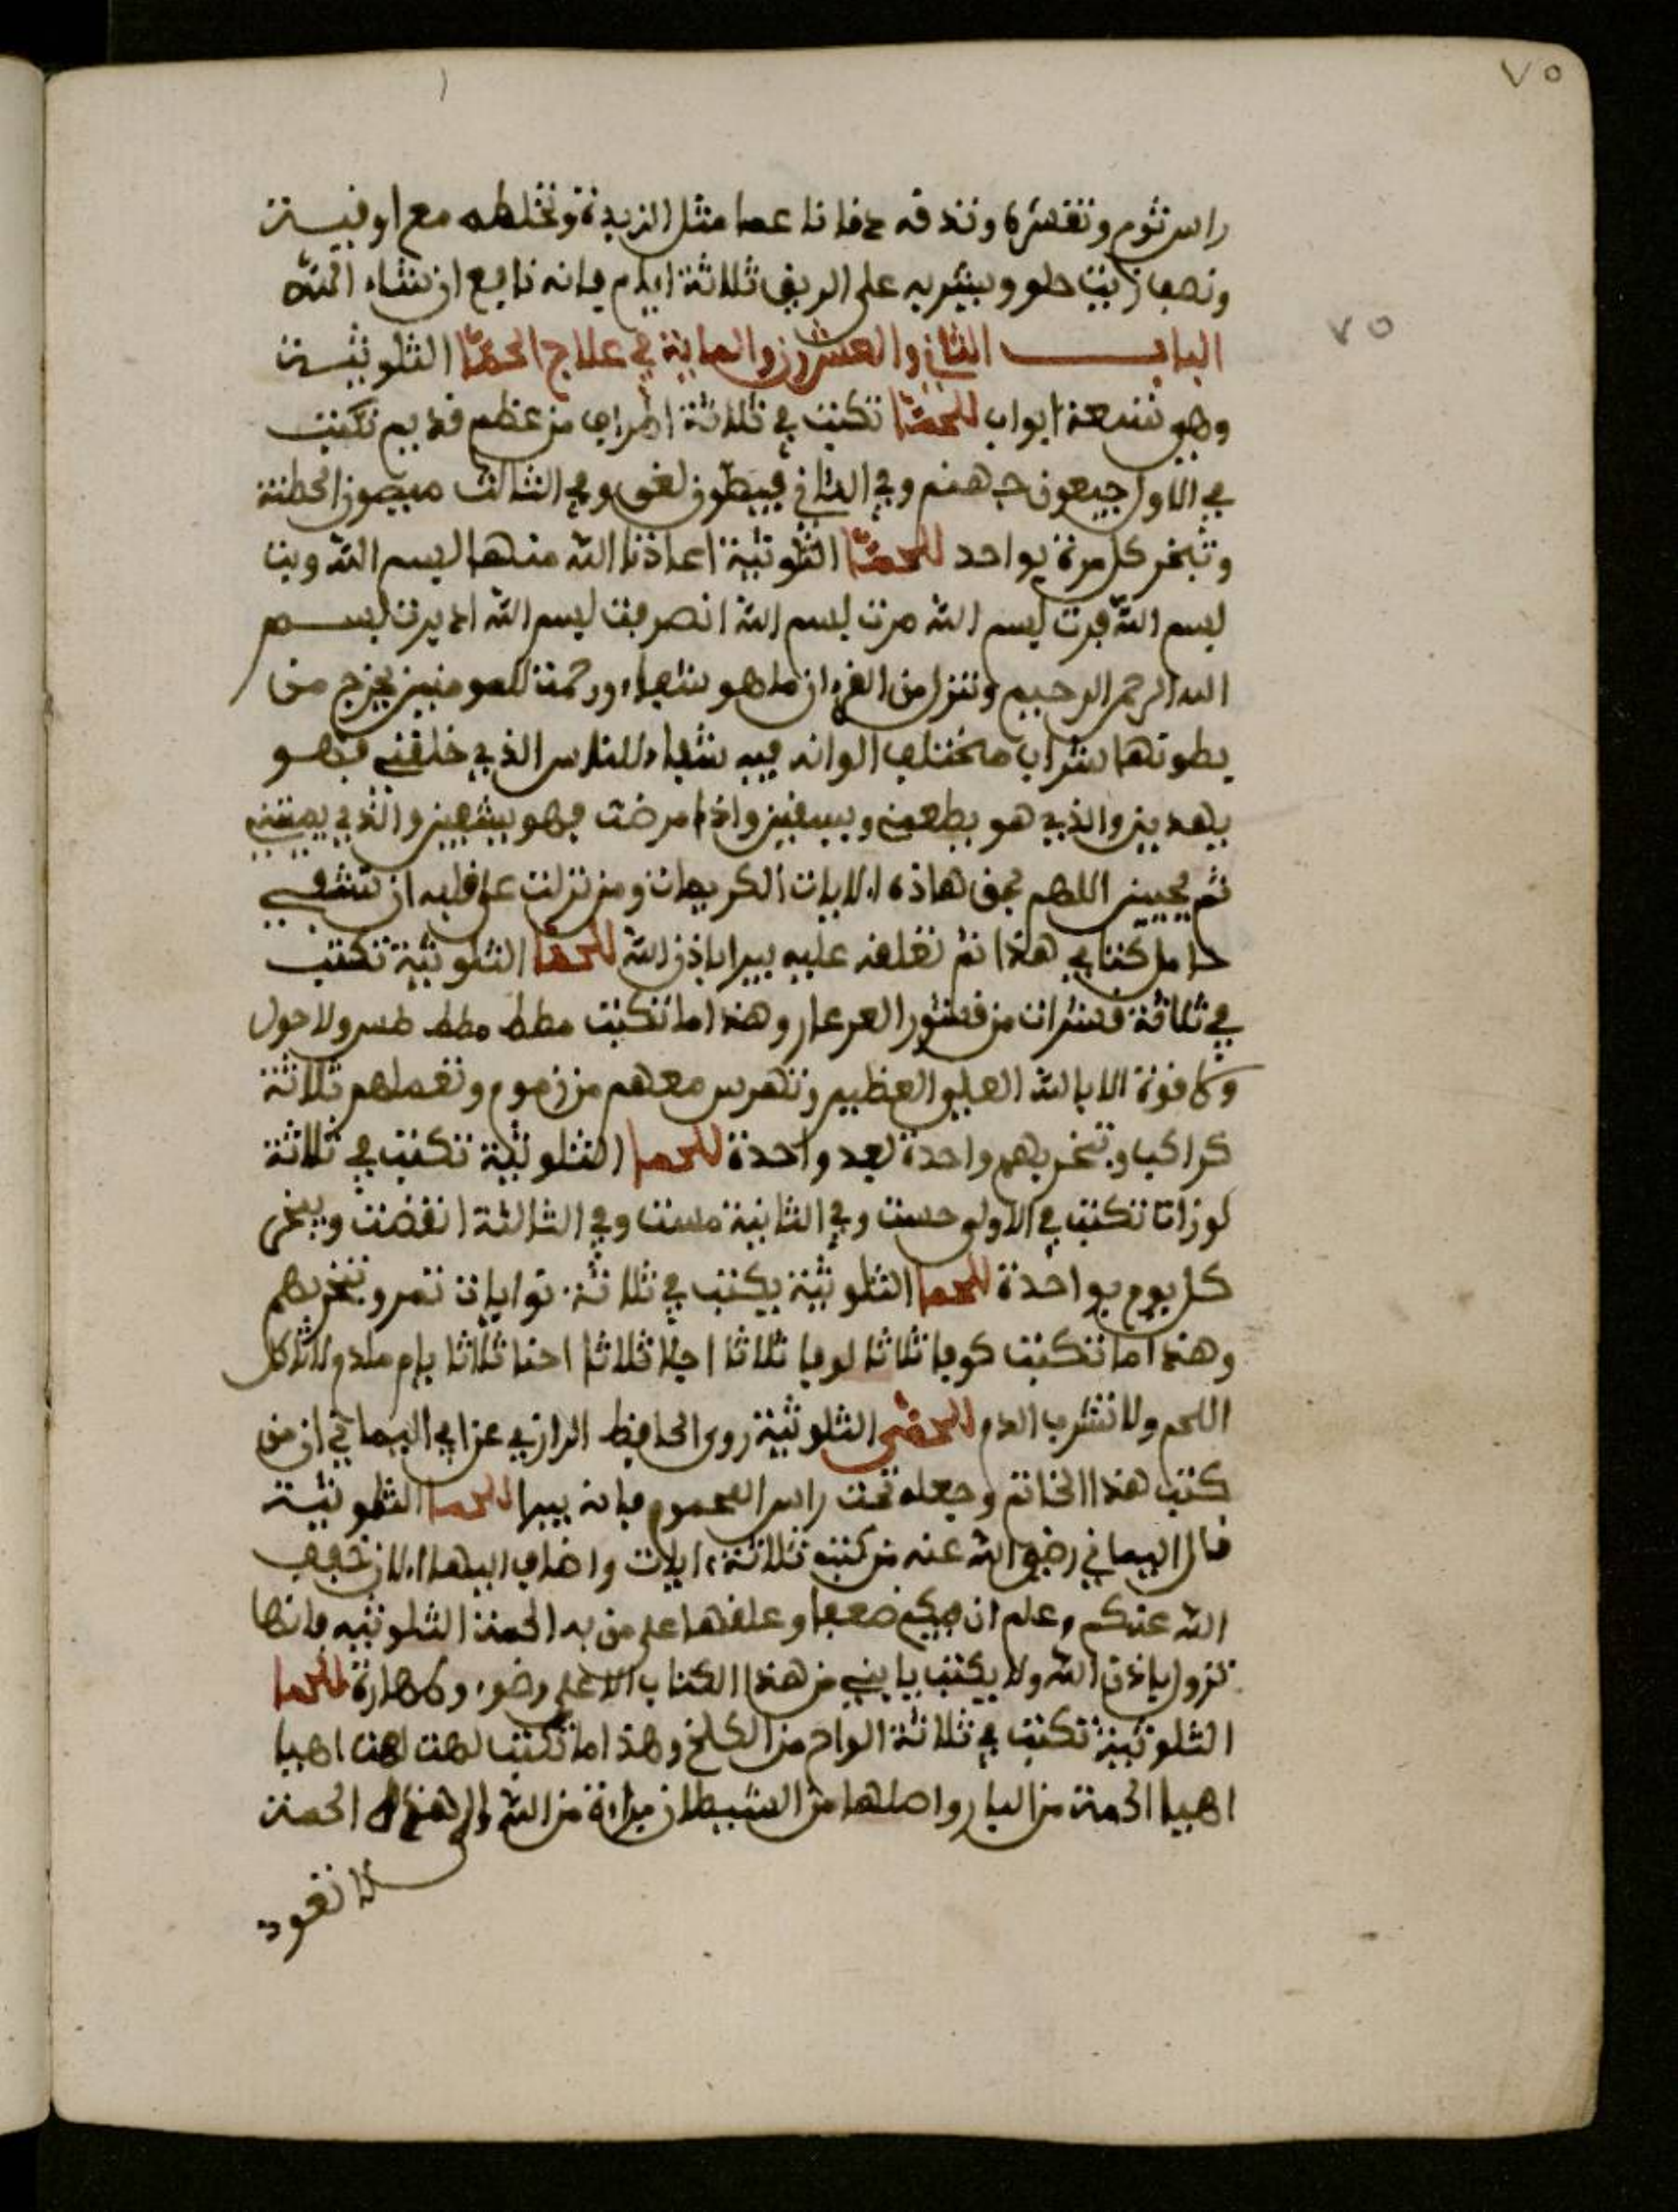 ٧٥
راس ثوم وتقشره وتدقه دقا ناعما مثل الزبدة وتخلطه مع اوقيت
ونصف زيت حلو ويشربه على الريق ثلاثة ايام فانه نافع ان شاء الله
٧٥
الباب الثاني والعشرون والماية في علاج الحما الثلوثيت
وهو تسعة ابواب للحما تكتب في ثلاثة اطراف من عظم قديم تكتب
في الاول جيعون جهنم وفي الثاني فيطون لغى وفي الثالث ميصون الحطمة
وتبخر كل مرة بواحد للحما الثلوثية اعاذنا الله منها ليسم الله وبت
بسم الله فرت بسم الله مرت بسم الله انصرفت بسم الله ادبرت بسم
الله الرحمن الرحيم وننزل من القرءان ما هو شفاء ورحمة للمومنين يخرج من
بطونها شراب مختلف الوانه فيه شفاء للناس الذي خلقني فهو
يهدين والذي هو يطعمني ويسقين واذا مرضت فهو يشفين والذي يميتني
ثم يحيين اللهم بحق هاذه الايات الكريمات ومن نزلت على قلبه ان تشفي
حامل كتابي هذا ثم تعلقه عليه يبرا باذن الله للحما الثلوثية تكتب
في ثلاثة قشرات من قشور العرعار وهذا ما تكتب مطط مطط طسر ولا حول
ولا قوة الا بالله العلي العظيم وتهرس معهم من زموم وتعملهم ثلاثة
كراكب وتبخر بهم واحدة بعد واحدة للحما الثلوثية تكتب في ثلاثة
لوزات تكتب في الاولى حست وفي الثانية مست وفي الثالثة انقضت ويبخر
كل يوم بواحدة للحما الثلوثية يكتب في ثلاثة توايات تمر وتبخر بهم
وهذا ما تكتب كوفا ثلاثا لوفا ثلاثا اجلا ثلاثا احنا ثلاثا يام ملدم لا تاكل
اللحم ولا تشرب الدم للحمى الثلوثية روى الحافظ الرازي عن ابي اليماني ان من
كتب هذا الخاتم وجعله تحت راس المحموم فانه يبرا للحما الثلوثية
قال اليماني رضي الله عنه من كتب ثلاثة ايات واضاف اليها الان خفف
الله عنكم وعلم ان فيكم ضعفا وعلقها على من به الحمة الثلوثيه فانها
تزول باذن الله ولا يكتب يابني من هذا الكتاب الا على وضوء وطهارة للحما
الثلوثية تكتب في ثلاثة الواح من الكلخ وهذا ما تكتب لهت لهت اهيا
اهيا الحمة من النار واصلها من الشيطان براءة من الله الى هذه الحمت
لا تعود